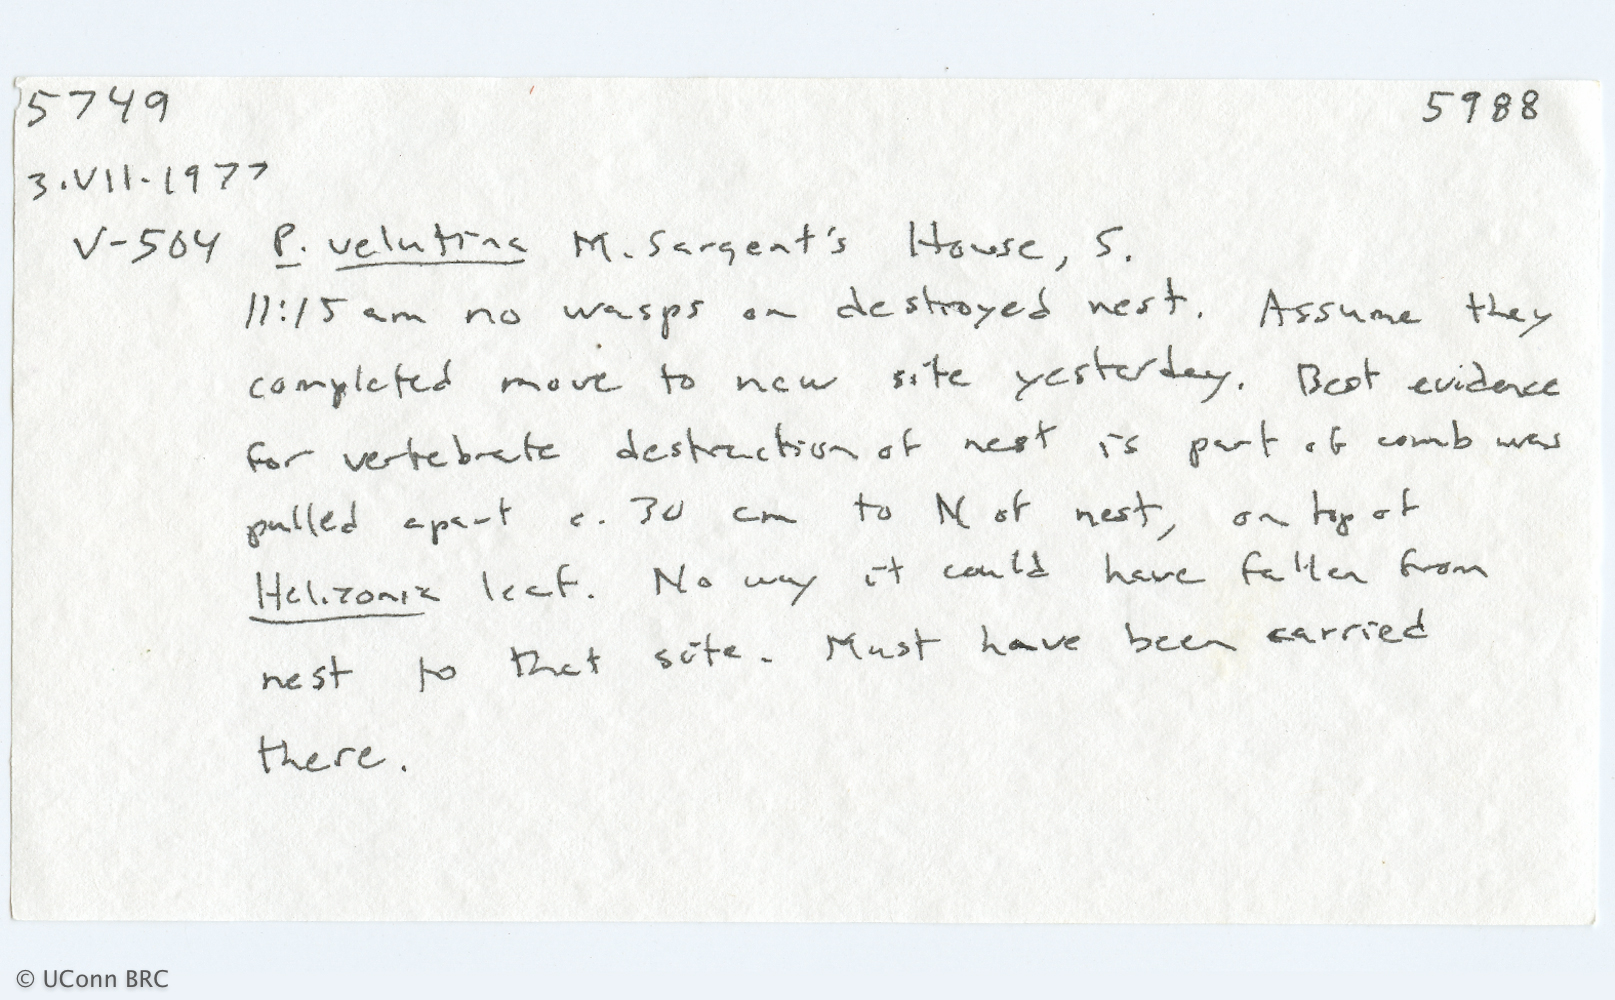 5749 5988
3.VII-1977
V-504 P. velutina M. Sargent's House, S.
11:15 am no wasps on destroyed nest. Assume they
completed move to new site yesterday. Best evidence
for vertebrate destruction of nest is part of comb was
pulled apart c. 30 cm to N of nest, on top of
Heliconia leaf. No way it could have fallen from
nest to that site. Must have been carried
there.
© UConn BRC